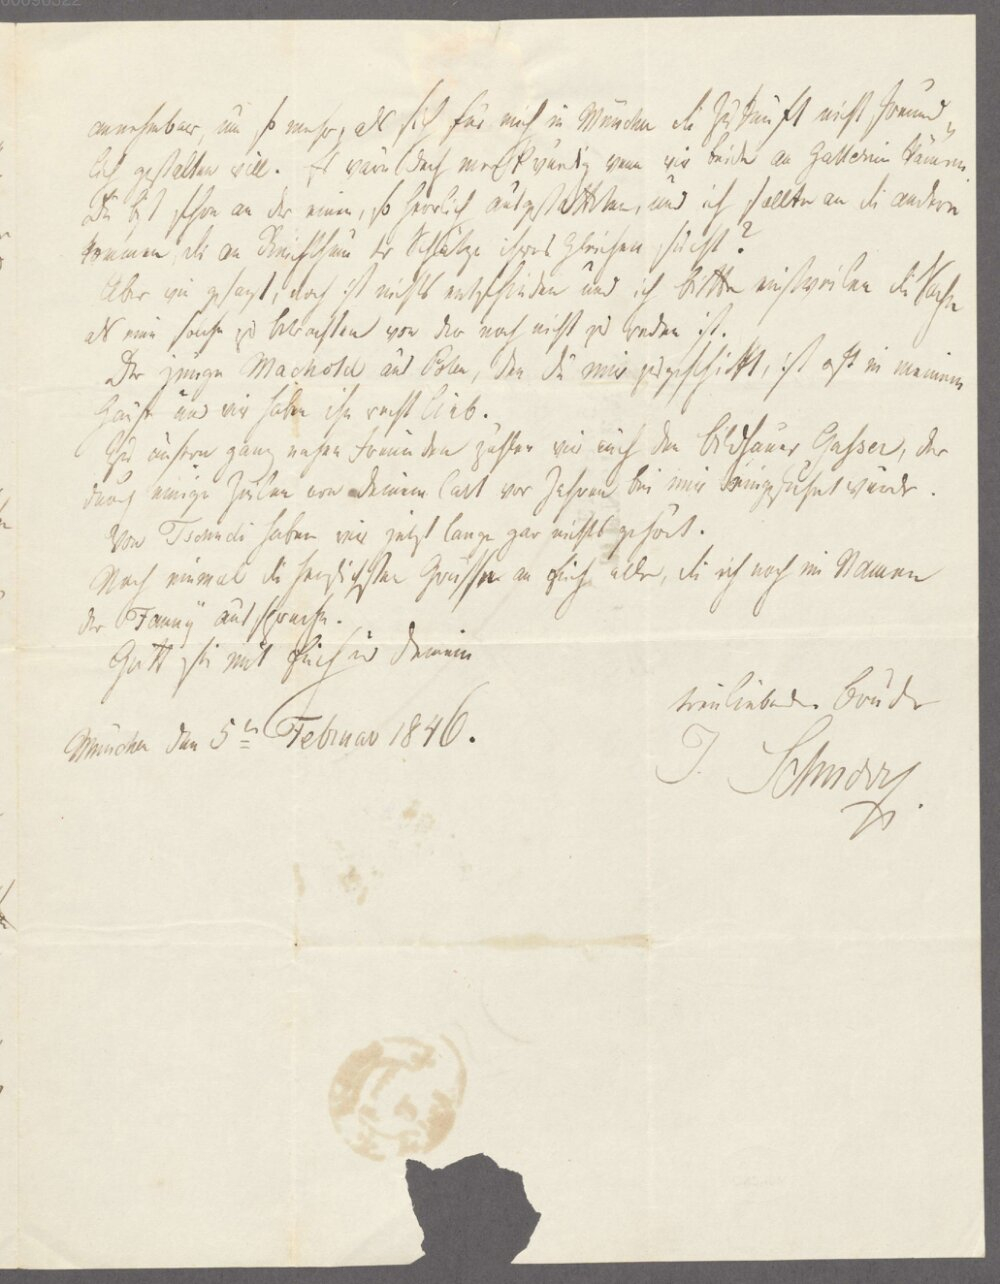 annehmbar, um so mehr, als sich für mich in München die Zukunft nicht freund
lich gestalten will. Es wäre doch merkwürdig wenn wir beide an Gallerien kämen.
Du bist schon an der einen, so herrlich ausgestatteten, und ich sollte an die andere
kommen, die an Reichthum der Schätze ihres Gleichen sucht?
Aber wie gesagt, noch ist nichts entschieden und ich bitte einstweilen die Sache
als eine Sache zu betrachten von der noch nicht zu reden ist.
Der junge Machold aus Polen, den du mir zugeschickt, ist oft in meinem
Hause und wir haben ihn recht lieb.
Zu unsern ganz nahen Freunden zählen wir auch den Bildhauer Gasser, der
durch einige Zeilen von deinem Carl vor Jahren bei mir eingeführt wurde.
Von Tschudi haben wir jetzt lange gar nichts gehört.
Noch einmal die herzlichsten Grüsse an Euch alle, die ich noch im Namen
der Fanny ausspreche.
Gott sei mit Euch und deinem
treuliebenden Bruder
München den 5ten Februar 1846.
J. Schnorr